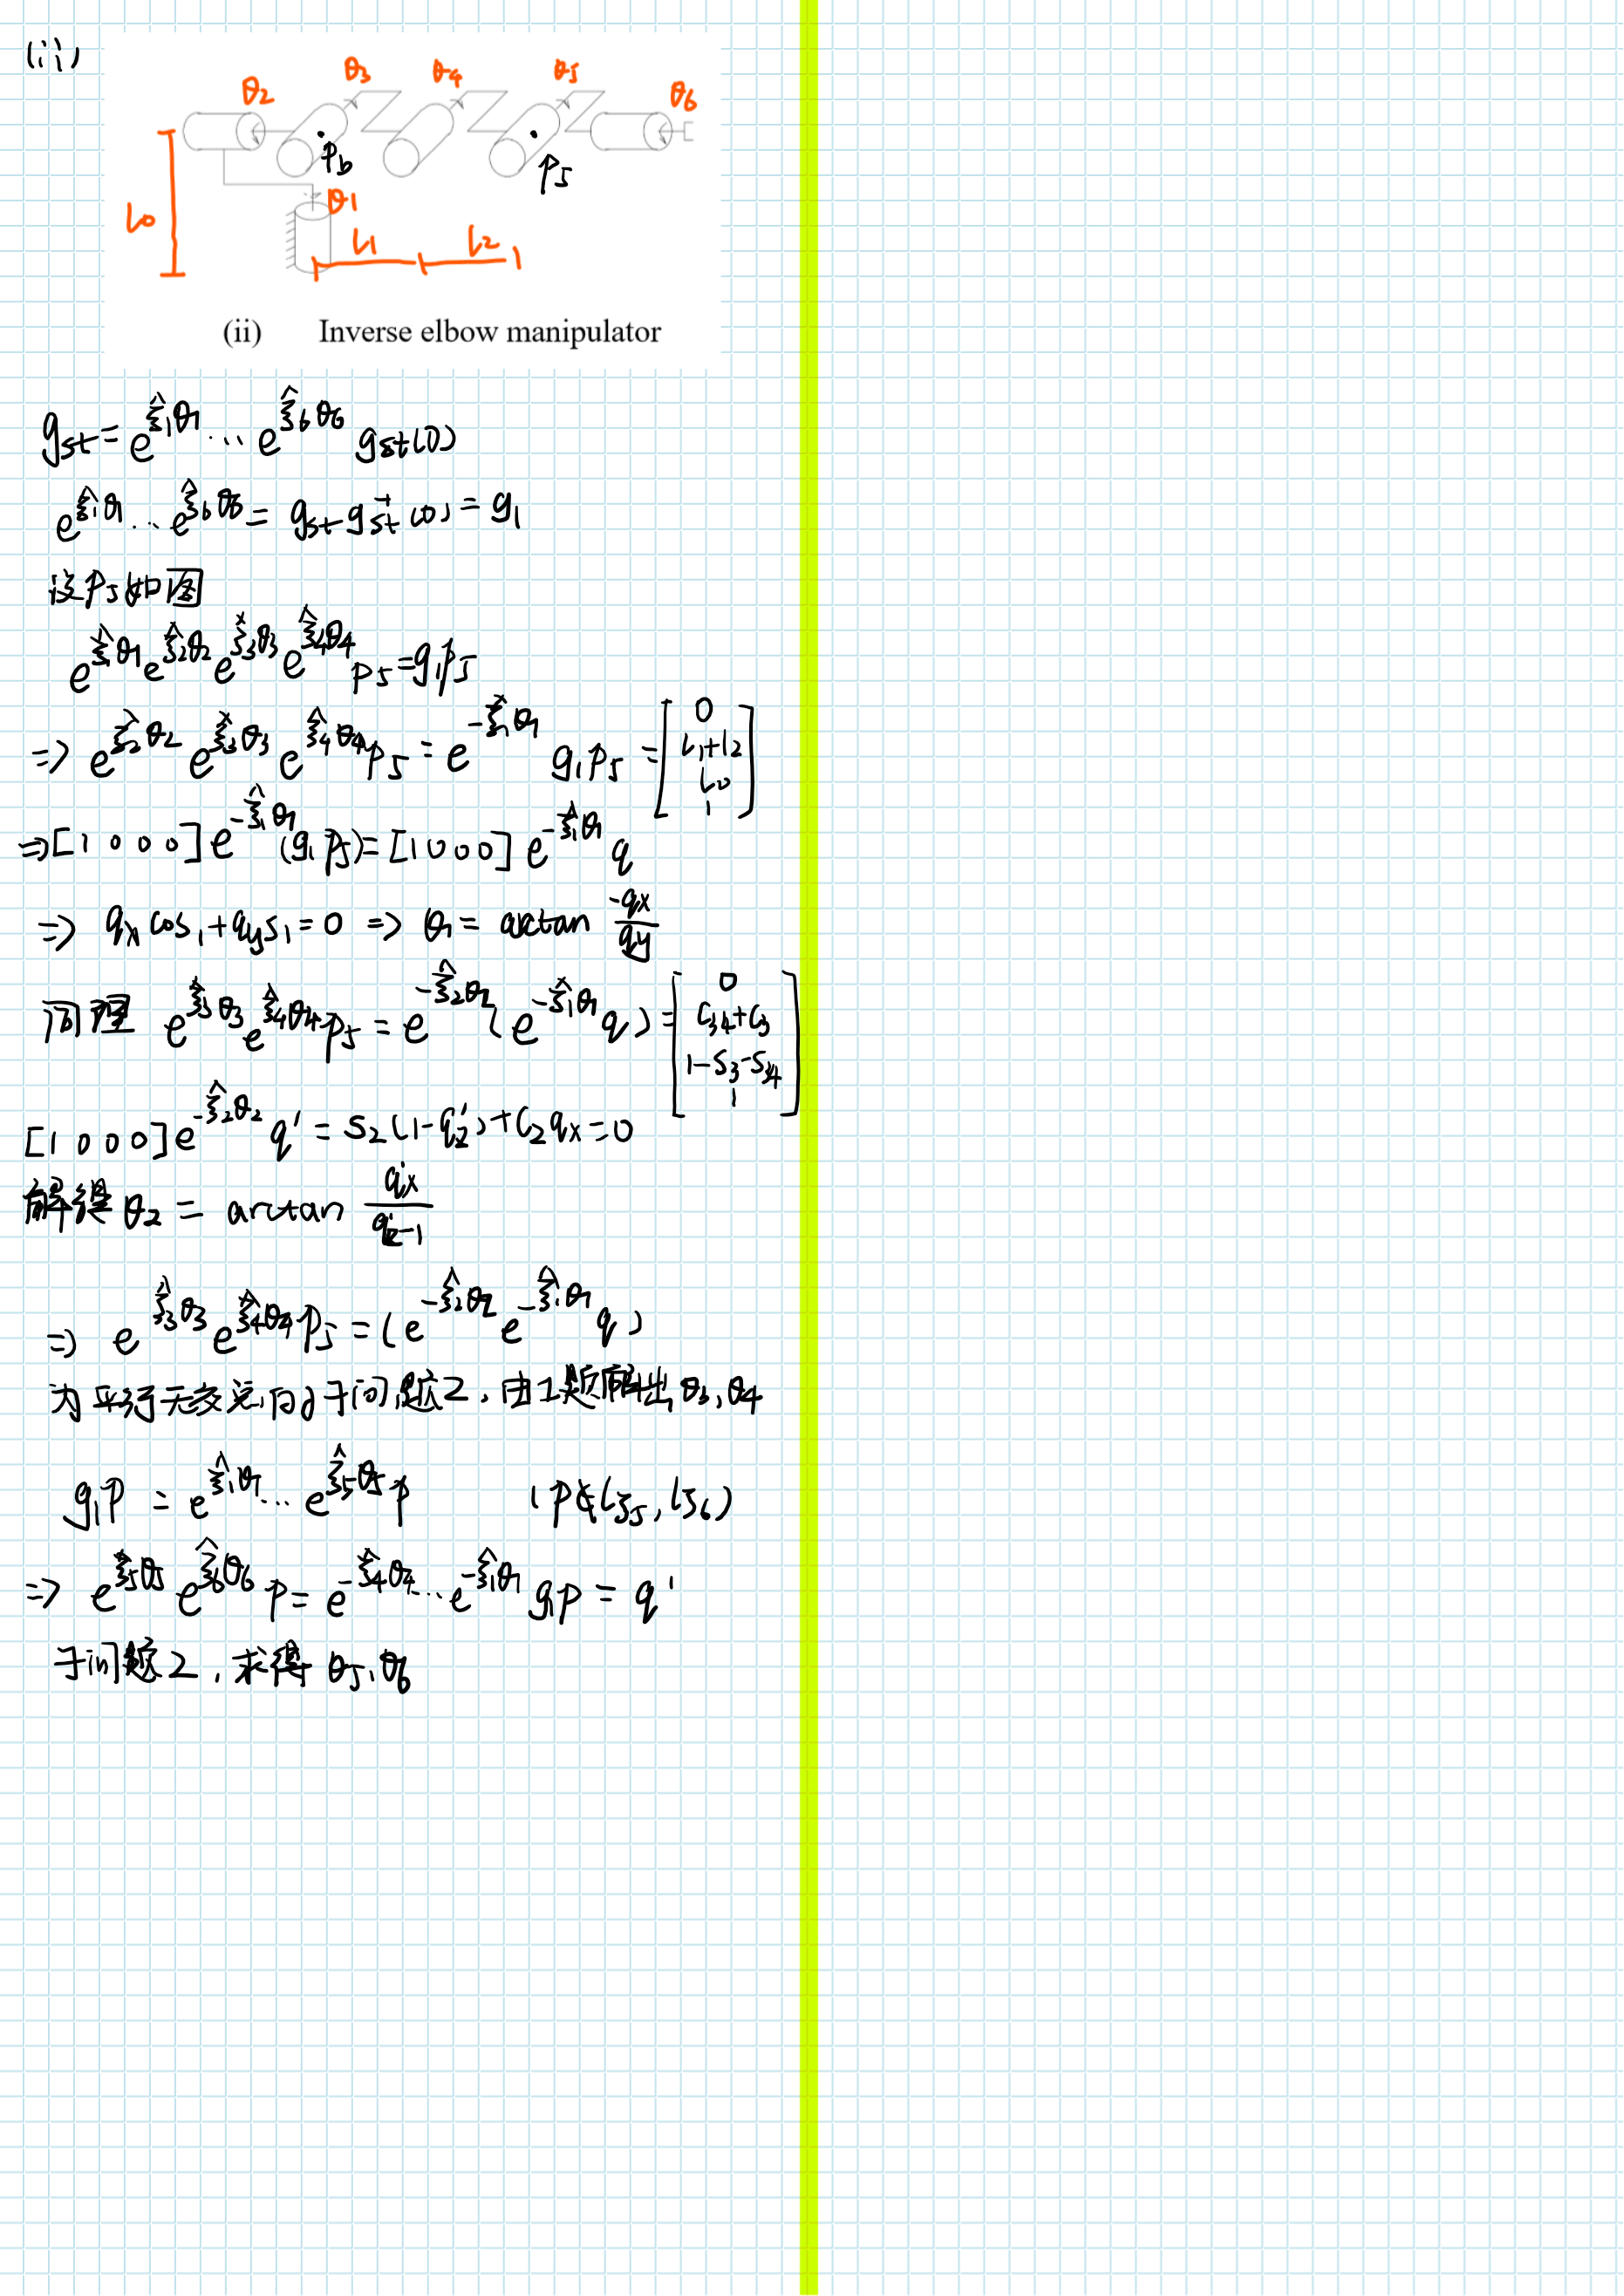 (ii)
θ2 θ3 θ4 θ5 θ6
Pb P5
θ1
L0
L1 L2
(ii) Inverse elbow manipulator
g_st = e^{ξ̂1θ1} ... e^{ξ̂6θ6} g_st(0)
e^{ξ̂1θ1} ... e^{ξ̂6θ6} = g_st g_st^{-1}(0) = g1
设P5如图
e^{ξ̂1θ1} e^{ξ̂2θ2} e^{ξ̂3θ3} e^{ξ̂4θ4} P5 = g1P5
=> e^{ξ̂2θ2} e^{ξ̂3θ3} e^{ξ̂4θ4} P5 = e^{-ξ̂1θ1} g1P5 = [0 L1+L2 L0 1]
=> [1 0 0 0] e^{-ξ̂1θ1} (g1P5) = [1 0 0 0] e^{-ξ̂1θ1} q
=> qx cos1 + qy s1 = 0 => θ1 = arctan -qx/qy
同理 e^{ξ̂3θ3} e^{ξ̂4θ4} P5 = e^{-ξ̂2θ2} (e^{-ξ̂1θ1} q) = [0 C34+C3 1-S3-S34 1]
[1 0 0 0] e^{-ξ̂2θ2} q' = S2(1-q'z) + C2qx = 0
解得 θ2 = arctan q'x/q'z-1
=> e^{ξ̂3θ3} e^{ξ̂4θ4} P5 = (e^{-ξ̂2θ2} e^{-ξ̂1θ1} q)
为平行无交点,向子问题2,由1题解出θ3,θ4
g1P = e^{ξ̂1θ1} ... e^{ξ̂5θ5} P (P∉lξ5, lξ6)
=> e^{ξ̂5θ5} e^{ξ̂6θ6} P = e^{-ξ̂4θ4} ... e^{-ξ̂1θ1} g1P = q'
子问题2,求得θ5,θ6